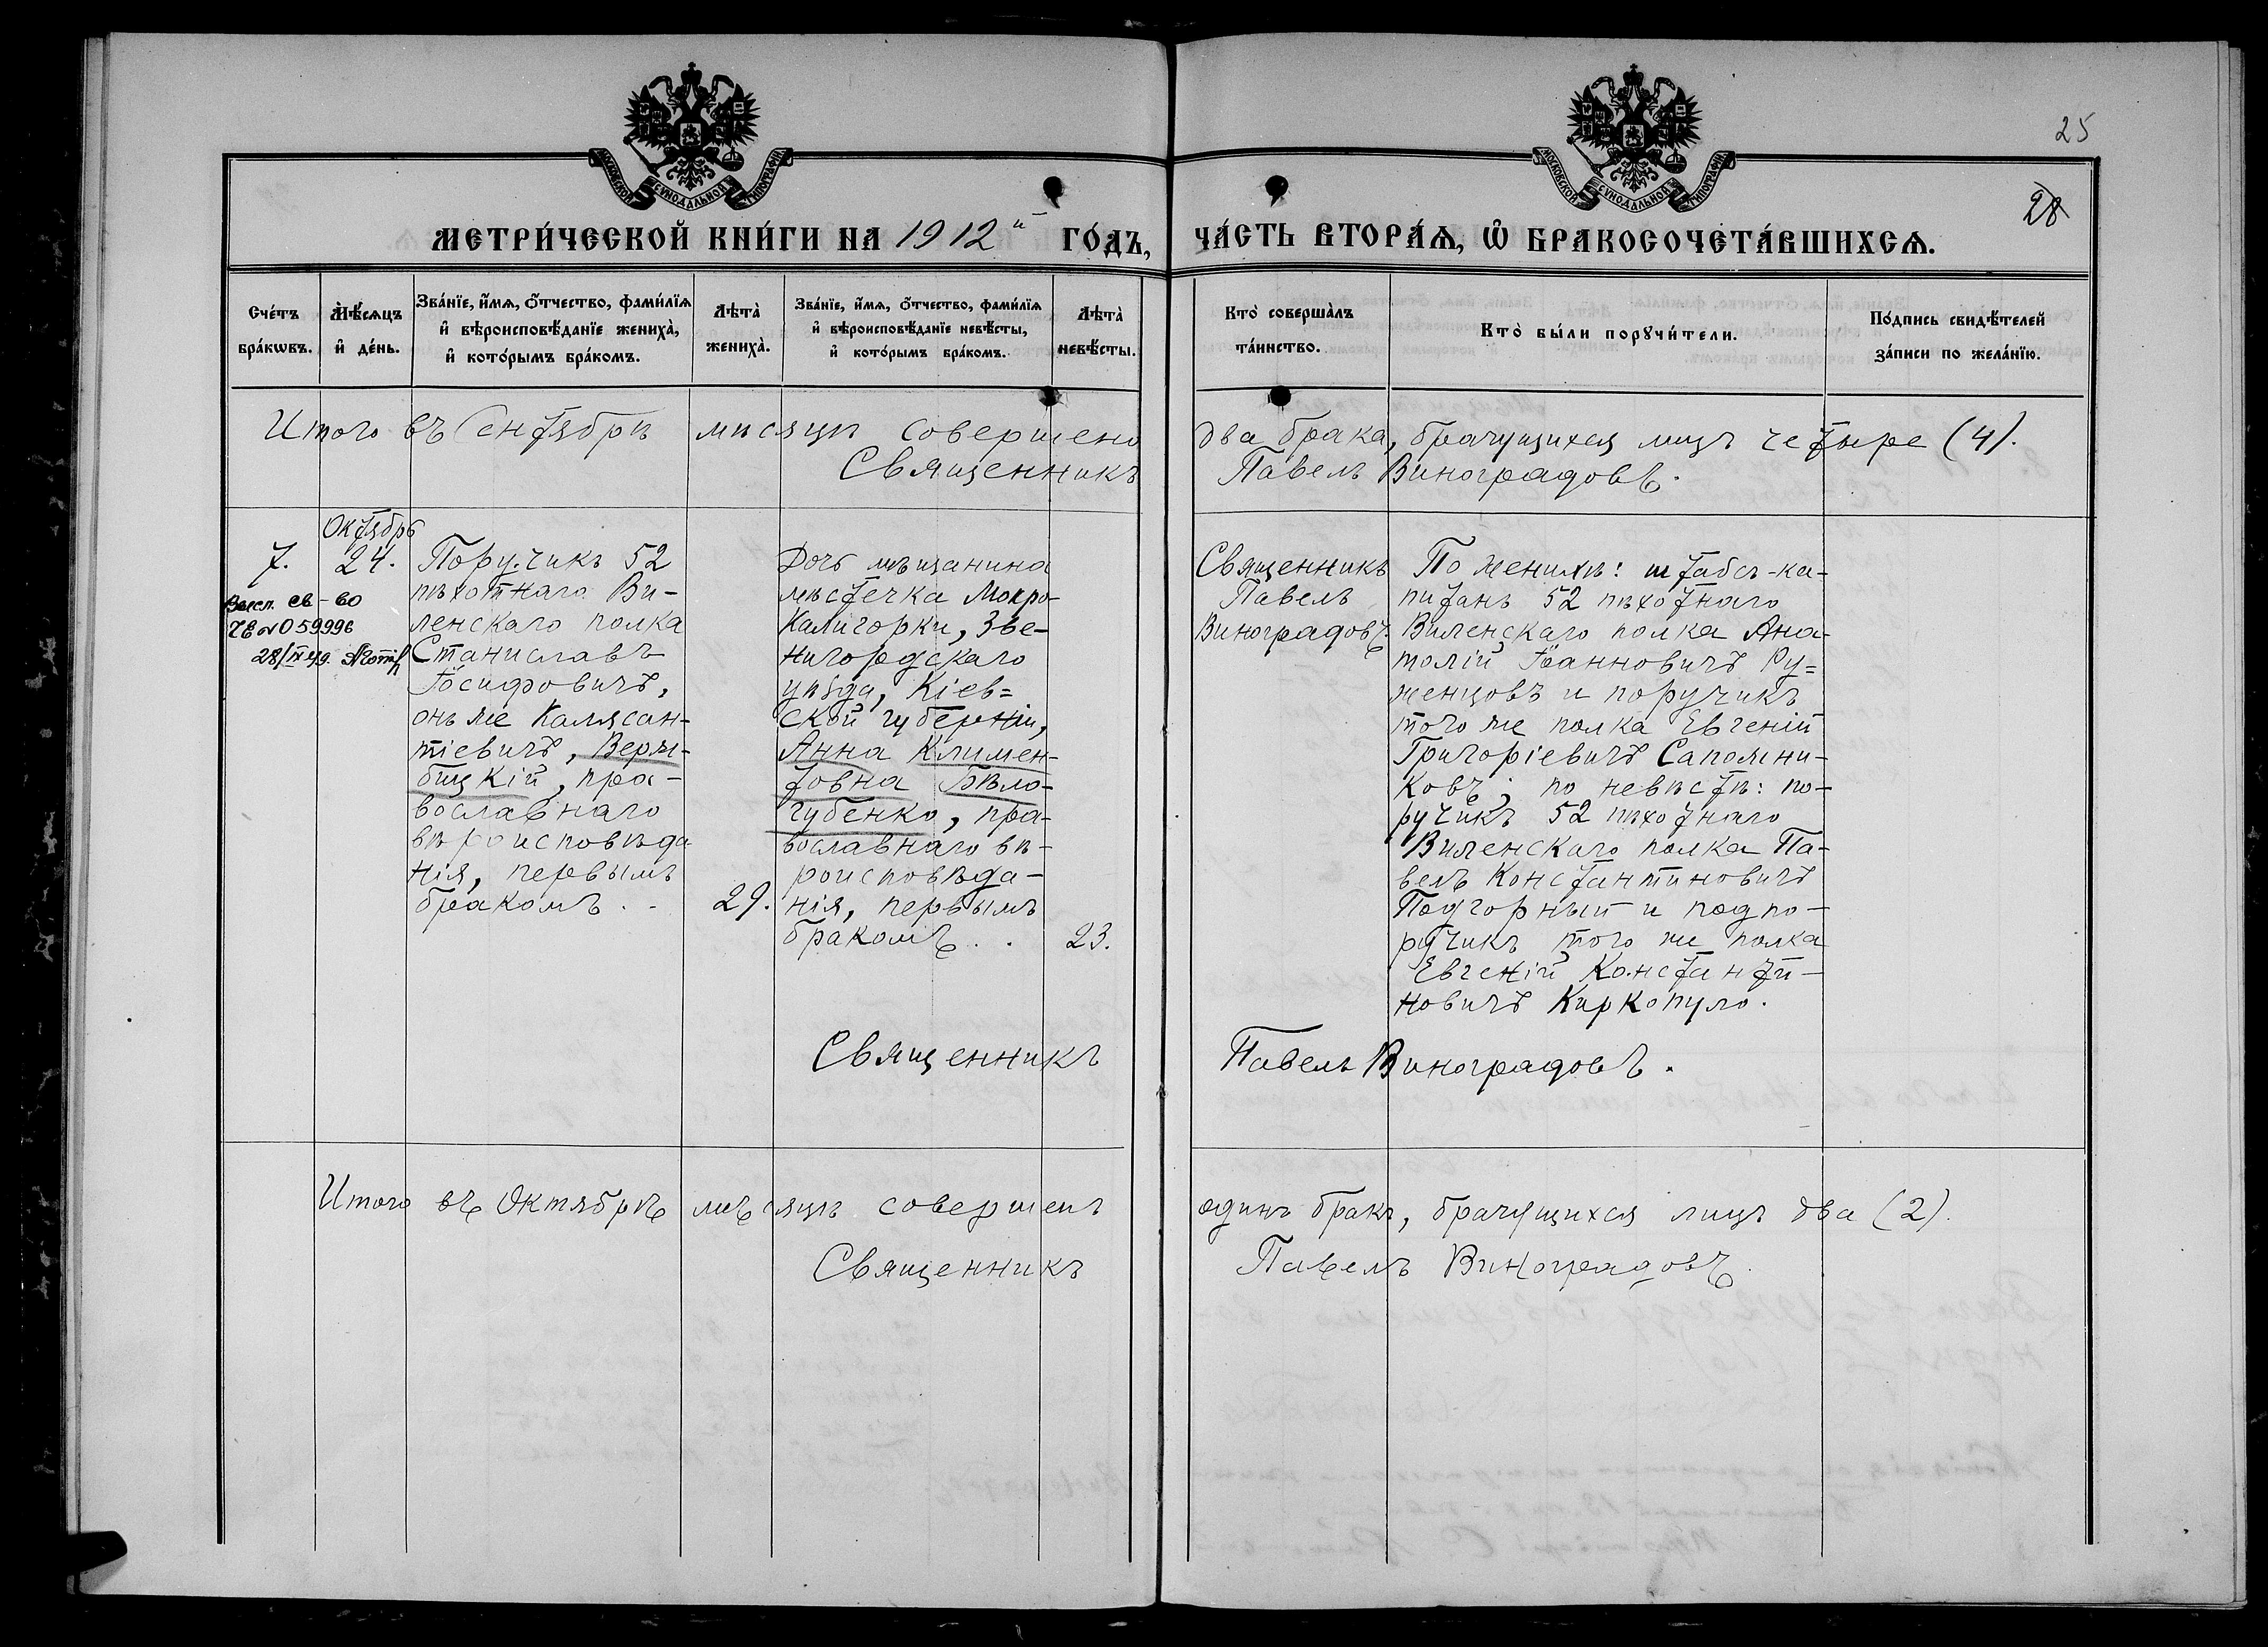 25
28
МОСКОВСКОЙ СѴНОДАЛЬНОЙ ТИПОГРАФІИ
МОСКОВСКОЙ СѴНОДАЛЬНОЙ ТИПОГРАФІИ
МЕТРИ́ЧЕСКОЙ КНИ́ГИ НА 1912й ГО́ДЪ, ЧА́СТЬ ВТОРА́Ѧ, Ѡ҆ БРАКОСОЧЕТА́ВШИХСѦ.
Сче́тъ
бра́кѡвъ.
Мѣ́сѧцъ
и҆ де́нь.
Зва́нїе, и҆́мѧ, ѻ҆́тчество, фами́лїѧ
и҆ вѣроисповѣ́данїе жениха̀,
и҆ кото́рымъ бра́комъ.
Лѣ́та
жениха̀.
Зва́нїе, и҆́мѧ, ѻ҆́тчество, фами́лїѧ
и҆ вѣроисповѣ́данїе невѣ́сты,
и҆ кото́рымъ бра́комъ.
Лѣ́та
невѣ́сты.
Кто̀ соверша̀лъ
та́инство.
Кто̀ бы́ли порꙋчи́тели.
По́дпись свидѣ́телей
за́писи по жела́нїю.
Итого въ Сентябрѣ мѣсяцѣ совершено два брака, брачущихся лицъ четыре (4).
Священникъ Павелъ Виноградовъ.
Октябрь
7. 24.
св-во
ЧЕ № 059996
28/IV
Поручикъ 52
пѣхотнаго Ви-
ленскаго полка
Станиславъ
Іосифовичъ,
онъ же Калясан-
тіевичъ, Верж-
бицкій, пра-
вославнаго
вѣроисповѣда
нія, первымъ
бракомъ..
29.
Дочь мѣщанина
мѣстечка Мокро-
Калигорки, Зве-
нигородскаго
уѣзда, Кіев=
ской губерніи,
Анна Климен-
товна Бѣло-
губенко, пра-
вославнаго вѣ-
роисповѣда-
нія, первымъ
бракомъ..
23.
Священникъ
Павелъ
Виноградовъ.
По женихѣ: штабсъ-ка-
питанъ 52 пѣхотнаго
Виленскаго полка Ана-
толій Іоанновичъ Ру=
женцовъ и поручикъ
того же полка Евгеній
Григоріевичъ Сапожни-
ковъ; по невѣстѣ: по-
ручикъ 52 пѣхотнаго
Виленскаго полка Па-
велъ Константиновичъ
Подгорный и подпо-
ручикъ того же полка
Евгеній Константи-
новичъ Киркопуло.
Священникъ Павелъ Виноградовъ.
Итого въ Октябрѣ мѣсяцѣ совершенъ одинъ бракъ, брачущихся лицъ два (2).
Священникъ Павелъ Виноградовъ.